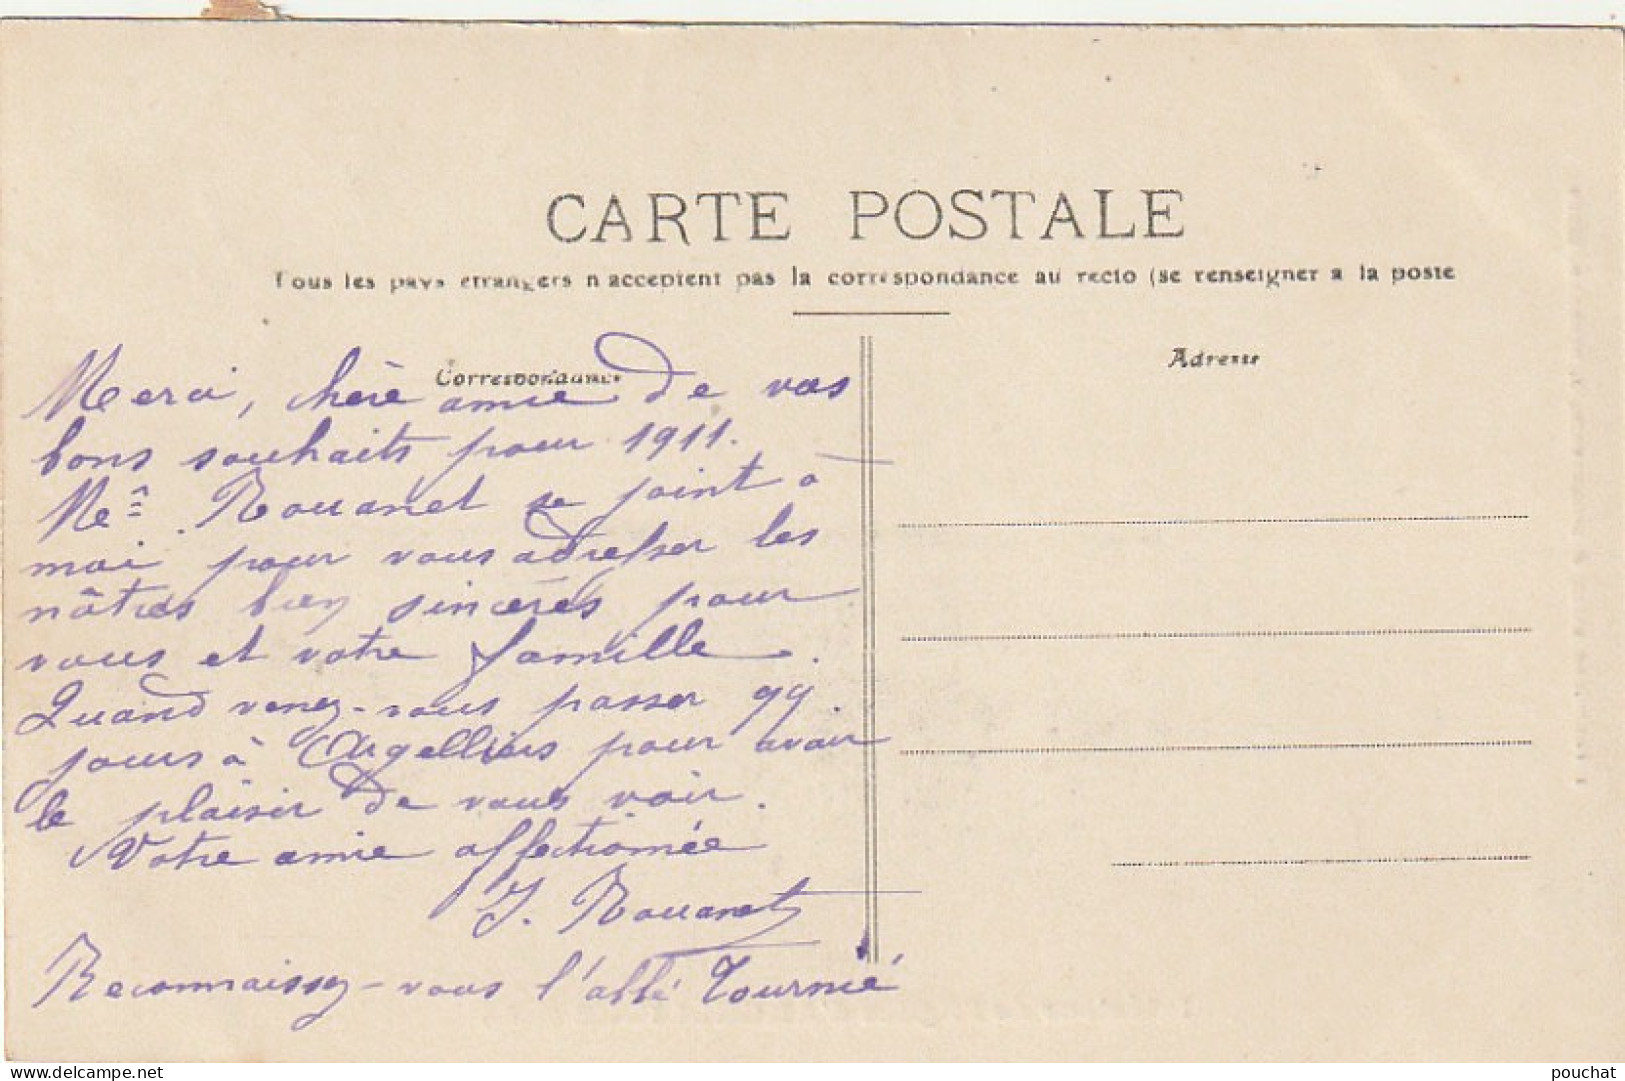 CARTE POSTALE
Tous les pays etrangers n acceptent pas la correspondance au recto (se renseigner a la poste
Correspondance
Adresse
Merci, chère amie de vos
bons souhaits pour 1911.
Me Rouanet se joint à
moi pour vous adresser les
nôtres bien sincères pour
vous et votre famille.
Quand venez-vous passer qq.
jours à Argelliers pour avoir
le plaisir de vous voir.
Votre amie affectionnée
J. Rouanet
Reconnaissez-vous l'abbé Tournié
www.delcampe.net
pouchat